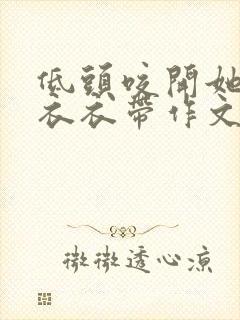 低頭咬開她
衣衣帶作文
微微透心凉